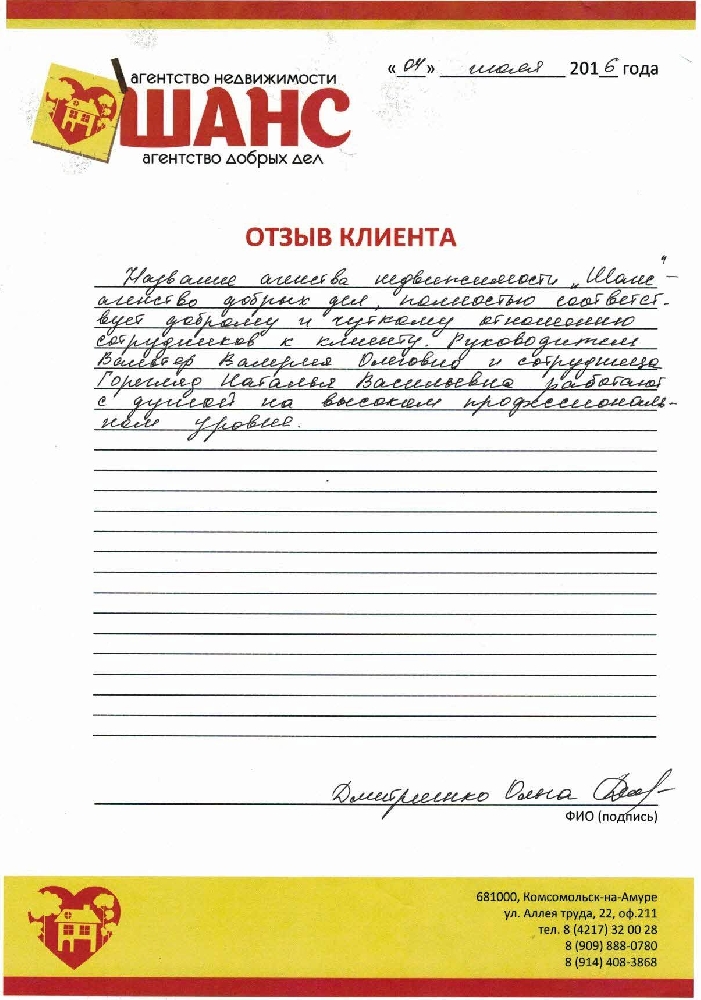 агентство недвижимости
ШАНС
агентство добрых дел
«04» июля 2016 года
ОТЗЫВ КЛИЕНТА
Название агенства недвижимости „Шанс“ –
агенство добрых дел, полностью соответст-
вует доброму и чуткому отношению
сотрудников к клиенту. Руководитель
Валерия Олеговна и сотрудница
Наталья Васильевна работают
с душой на высоком профессиональ-
ном уровне.
Дмитриенко
ФИО (подпись)
681000, Комсомольск-на-Амуре
ул. Аллея труда, 22, оф.211
тел. 8 (4217) 32 00 28
8 (909) 888-0780
8 (914) 408-3868